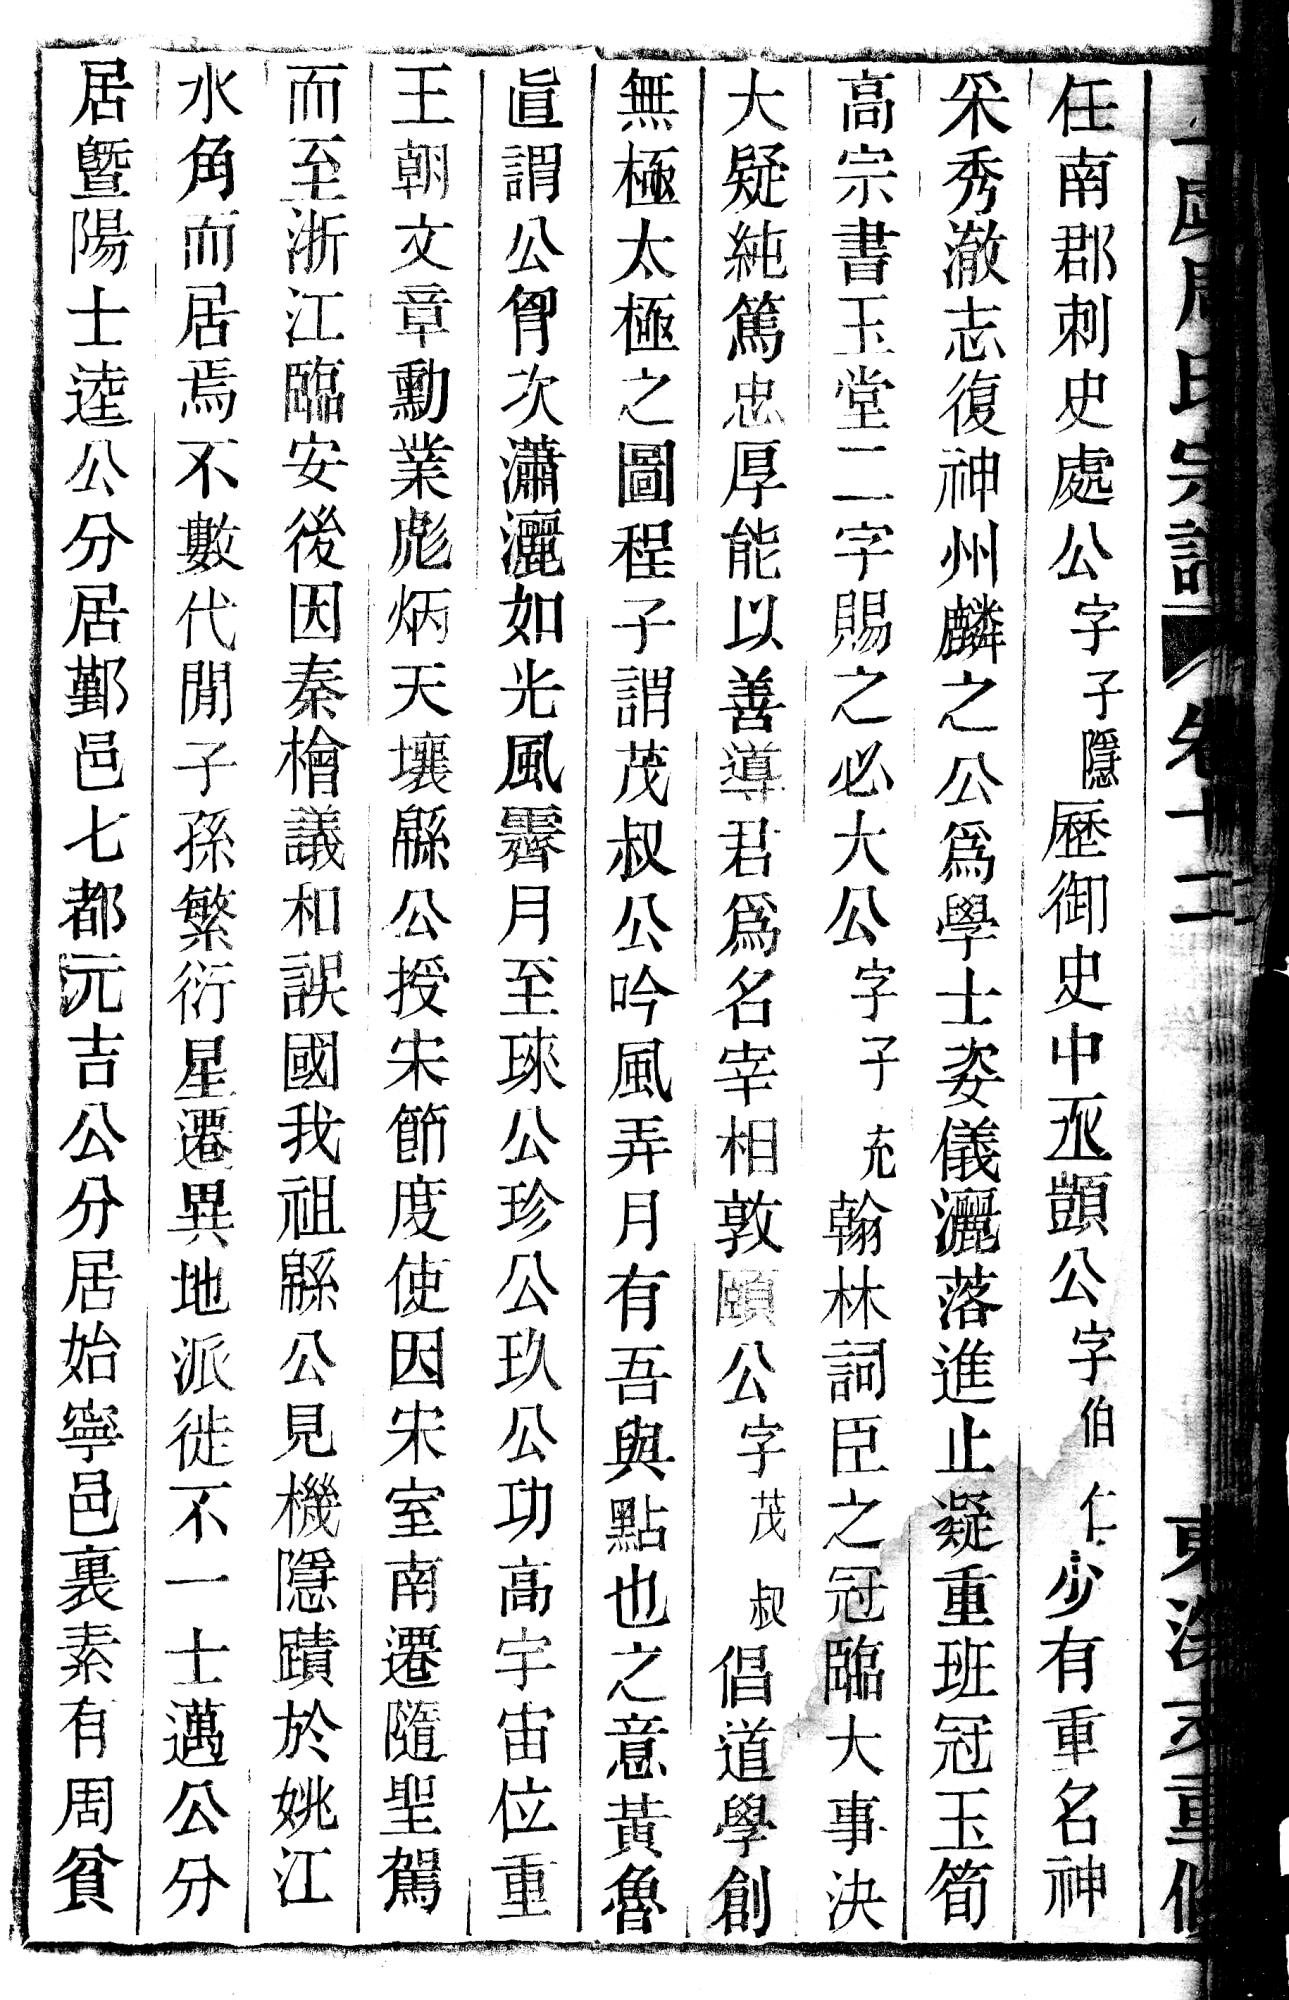 上虞周氏宗譜 卷十二 東溪天重修
任南郡刺史處公字子隱歷御史中丞顗公字伯仁少有重名神
采秀澈志復神州麟之公爲學士姿儀灑落進止凝重班冠玉筍
高宗書玉堂二字賜之必大公字子充翰林詞臣之冠臨大事決
大疑純篤忠厚能以善導君爲名宰相敦頤公字茂叔倡道學創
無極太極之圖程子謂茂叔公吟風弄月有吾與點也之意黃魯
眞謂公胷次瀟灑如光風霽月至琜公珍公玖公功高宇宙位重
王朝文章勳業彪炳天壤緜公授宋節度使因宋室南遷隨聖駕
而至浙江臨安後因秦檜議和誤國我祖緜公見機隱蹟於姚江
水角而居焉不數代閒子孫繁衍星遷異地派徙不一士邁公分
居曁陽士逵公分居鄞邑七都元吉公分居始寧邑裏素有周貧